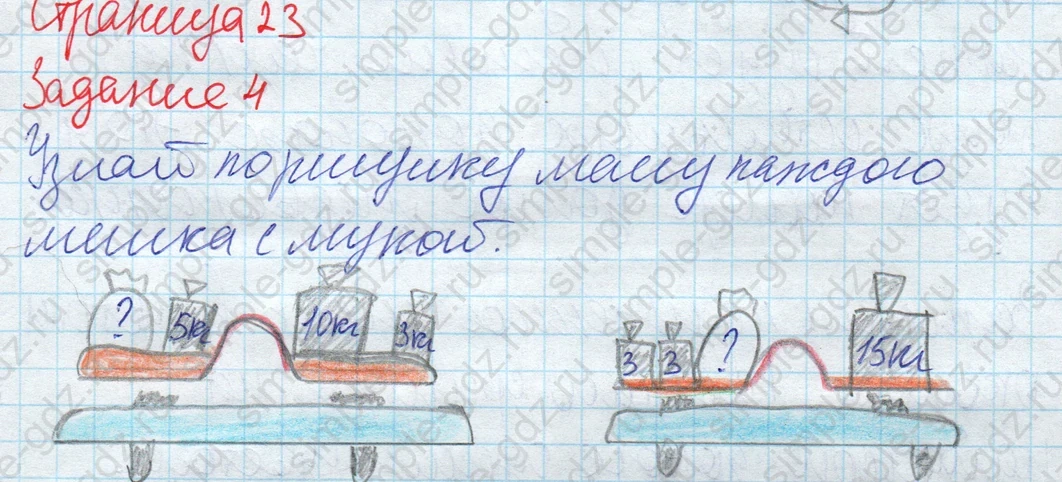 Страница 23
Задание 4
Узнай по рисунку массу каждого
мешка с мукой.
? 5кг 10кг 3кг
3 3 ? 15кг
simple-gdz.ru